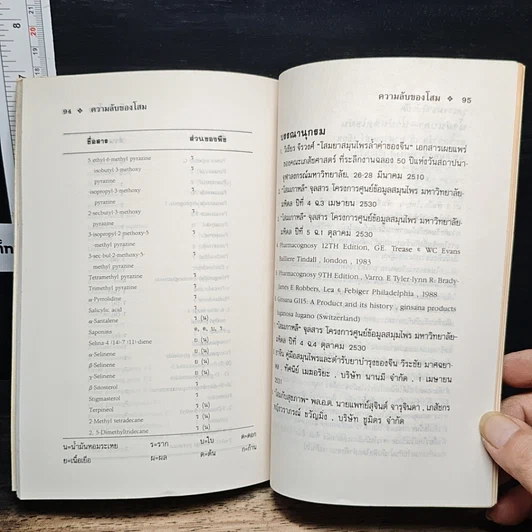 94 ❖ ความลับของโสม
ชื่อสาร ส่วนของพืช
5-ethyl-6-methyl pyrazine ร
isobutyl-3-methoxy ร
pyrazine
isopropyl-3-methoxy ร
pyrazine
2-secbutyl-3-methoxy ร
pyrazine
3-isopropyl-2-methoxy-5 ร
methyl pyrazine
3-sec-bul-2-methoxy-5 ร
methyl pyrazine
Tetramethyl pyrazine ร
Trimethyl pyrazine ร
α-Pyrrolidine ร
Salicylic acid ร
α-Santalene ร (น)
Saponins
Selina-4 (14)-7 (11)-dame ย (น)
α-Selinene ย (น)
β-Selinene ย (น)
γ-Selinene ย (น)
β-Sitosterol ร
Stigmasterol ร
Terpineol ร (น)
2-Methyl tetradecane ร (น)
2, 5-Dimethyltridecane ร (น)
น=น้ำมันหอมระเหย ร=ราก บ=ใบ ด=ดอก
ย=เนื้อเยื่อ ผ=ผล ต=ต้น ก=ก้าน
ความลับของโสม ❖ 95
บรรณานุกรม
วิเชียร จีรวงศ์ "โสมยาสมุนไพรล้ำค่าของจีน" เอกสารเผยแพร่
ของคณะเภสัชศาสตร์ ที่ระลึกงานฉลอง 50 ปีแห่งวันสถาปนา
จุฬาลงกรณ์มหาวิทยาลัย. 26-28 มีนาคม 2510
"โสมเกาหลี" จุลสาร โครงการศูนย์ข้อมูลสมุนไพร มหาวิทยาลัย-
มหิดล ปีที่ 4 ฉ.3 เมษายน 2530
"โสมเกาหลี" จุลสาร โครงการศูนย์ข้อมูลสมุนไพร มหาวิทยาลัย-
มหิดล ปีที่ 5 ฉ.1 ตุลาคม 2530
Pharmacognosy 12TH Edition, GE. Trease & WC Evans
Balliere Tindall , london , 1983
Pharmacognosy 9TH Edition , Varro. E Tyler-lynn R. Brady-
James E Robbers, Lea & Febiger Philadelphia , 1988
Ginsana G115. A Product and its history , ginsana products
lugano (Switzerland)
"โสมเกาหลี" จุลสาร โครงการศูนย์ข้อมูลสมุนไพร มหาวิทยาลัย-
มหิดล ปีที่ 4 ฉ.4 ตุลาคม 2530
คู่มือสมุนไพรและตำรับยาบำรุงของจีน วีระชัย มาศฉมา-
ทัศนีย์ เมฆอริยะ , บริษัท นานมี จำกัด , 1 เมษายน
"โสมกับสุขภาพ" พล.อ.ต. นายแพทย์สุจินต์ จารุจินดา , เภสัชกร
ขวัญมิ่ง , บริษัท ชูมิตร จำกัด